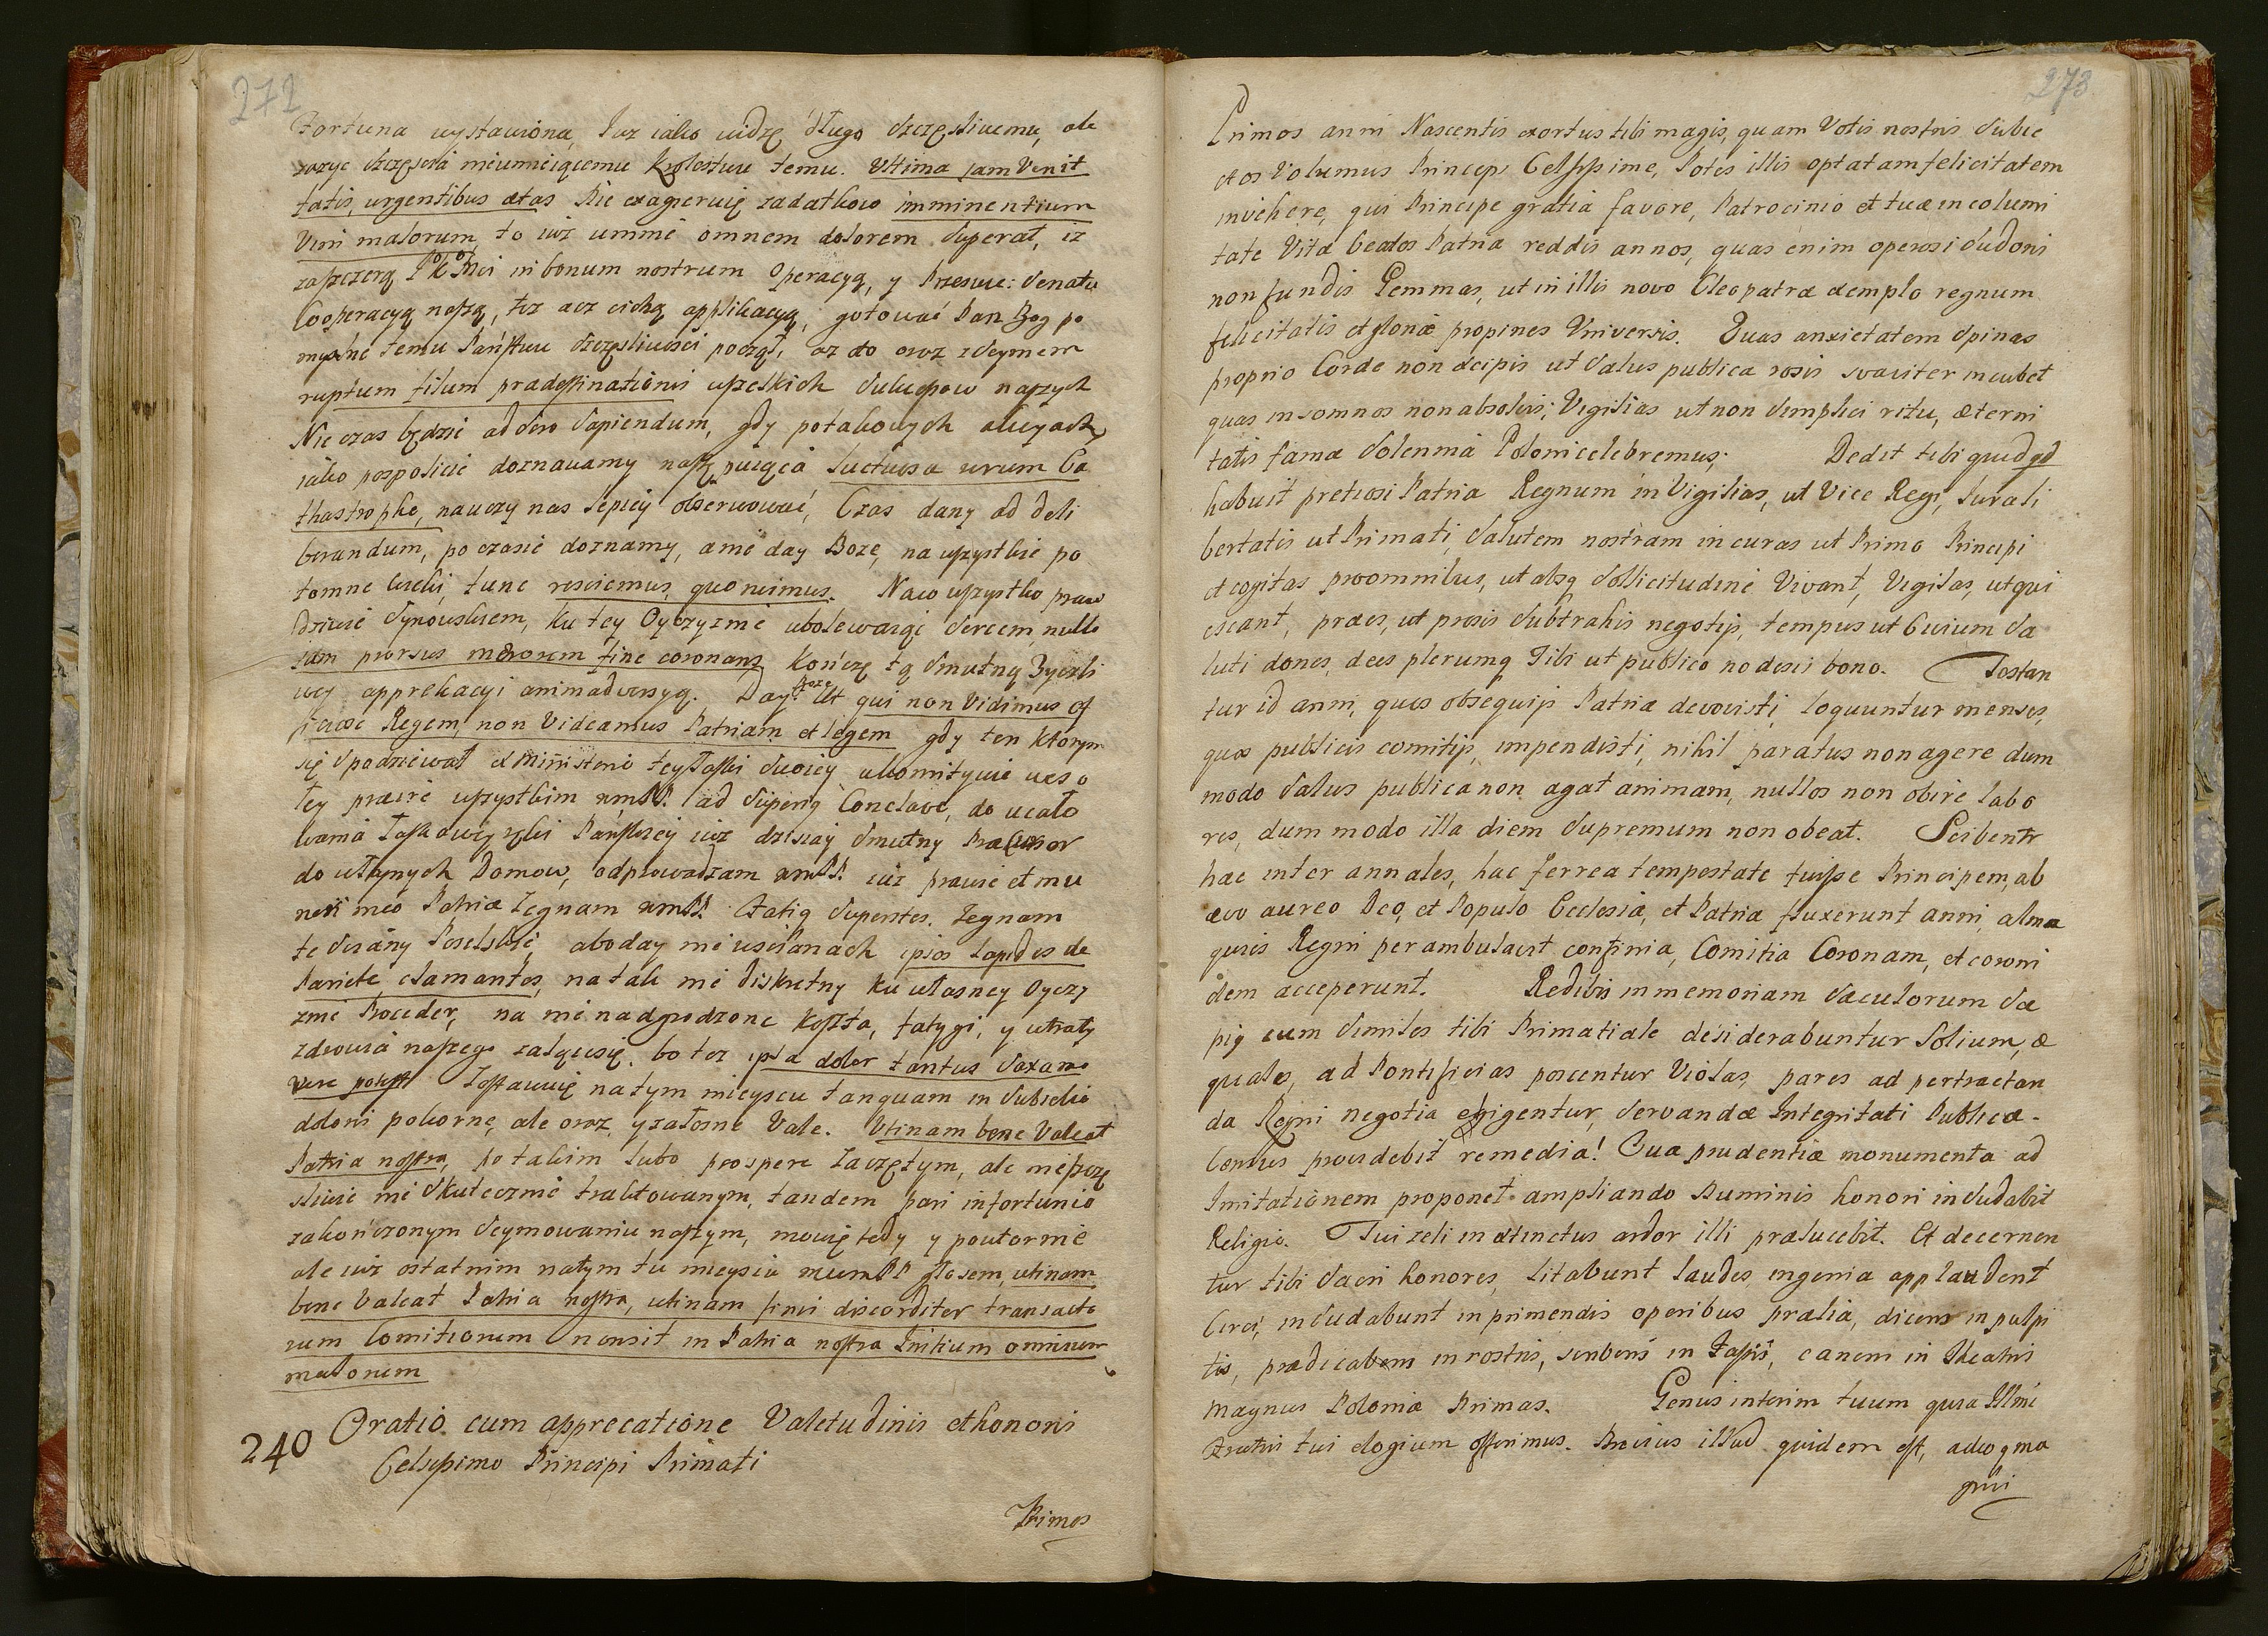 272
Fortuna wystawiona, Iuz iako widzę długo szczęsliwemu, ale
zazyc szczęscia nieumieiącemu Krolestwu temu. Vltima jam Venit
fatis, urgentibus ætas Nie exageruię zadatkow imminentium
Vini malorum, to iuz ummie omnem dolorem superat, iz
zaszczerą in bonum nostrum Operacyą, y Przeswie: Senatu
Cooperacyą naszą, tez acz cichą applikacyą, gotować Pan Bog po
myslne temu Państwu szczęsliwosci począł, az oto oraz z Seymem
ruptum filum prædestinationis wszelkich sukcessow naszych
Nie czas będzie ad sero Sapiendum, gdy potakowych akcyach,
iako pospolicie doznawamy luctuosa rerum Ca
thastrophe, nauczy nas lepiey obserwować, Czas dany ad deli
berandum, po czasie doznamy, a nie day Boze, na wszystkie po
tomne wieki, tunc resciemus, quo ruimus. Naco wszystko praw
dziwie Synowskiem, ku tey Oyczyznie ubolewaiąc sercem, nullo
iam prorsus mærorem fine coronans Kończę tą smutną Zyczli
wey apprekacyi animadwersyą. Day Boze Ut qui non Vidimus of
ficiose Regem, non Videamus Patriam et legem gdy ten ktorym
się spodziewał ex ministerio tey łaski swoiey akomitywie weso
łey præire wszystkim wmPP. ad superiq Conclave, do ucało
wania Łaskawey ręki Pańskiey iuz dzisiay smutny Præcursor
do własnych Domow, odprowadzam wmPP. iuz prawie et mu
neri meo Patriæ Zegnam wmPP. Fatiq superstes. Zegnam
te sciany Poselskie, aboday nie wscianach ipsos lapides de
Pariete, clamantes, na tak nie diskretny ku własney Oyczy
znie Proceder, na nie nadgrodzone koszta, fatygi, y utraty
zdrowia naszego zalącesię. bo tez ipsa dolor tantus saxa mo
vere potest Zostawuię na tym mieyscu tanquam in subselio
doloris pokorne, ale oraz y załosne Vale. Utinam bene Valeat
Patria nostra, po takim lubo prospere Zaczętym, ale nieszczę
sliwie nie skutecznie traktowanym, tandem pari infortunio
zakończonym Seymowaniu naszym, mowię tedy y powtornie
ale iuz ostatnim natym tu mieyscu glosem, utinam
bene Valeat Patria nostra, utinam finis discorditer transacto
rum Comitiorum non sit in Patria nostra Initium omnium
malorum
240 Oratio cum apprecatione Valetudinis et honoris
Celsissimo Principi Primati
Primos
273
Primos anni Nascentis exortus tibi magis, quam Votis nostris subie
ctos Volumus Princeps Celsissime, Potes illis optatam felicitatem
invehere, qui Principe gratia favore, Patrocinio et tuæ incolumi
tate Vitæ beatos Patriæ reddis annos, quas enim operosi sudoris
non fundis Gemmas, ut in illis novo Cleopatræ exemplo regnum
felicitatis et gloriæ propines Universis. Quas anxietatem spinas
proprio Corde non decipis ut salus publica rosis suaviter incubet
quas insomnos non absolvis; Vigilias ut non simplici ritu, æterni
tatis famæ Solennia Poloni celebremus; Dedit tibi quidqd
habuit pretiosi Patria Regnum in Vigilias, ut Vice Regi, Iura li
bertatis ut Primati, salutem nostram in curas ut Primo Principi
et cogitas pro omnibus, ut absq sollicitudine Vivant, Vigilas, ut qui
escant, præes, ut prosis subtrahis negotijs, tempus ut Civium sa
luti dones, dees plerumq Tibi ut publico no desis bono. Testan
tur id anni, quos obsequijs Patriæ devovisti, loquuntur menses,
quos publicis comitijs, impendisti, nihil paratus non agere dum
modo salus publica non agat animam, nullos non obire labo
res, dum modo illa diem supremum non obeat. Scibentr
hac inter annales, hac ferrea tempestate fuisse Principem, ab
ævo aureo Deo, et Populo Ecclesiæ, et Patriæ fluxerunt anni, alma
quies Regni perambulavit confinia, Comitia Coronam, et coroni
dem acceperunt. Redibis in memoriam sæculorum sæ
pių cum similes tibi Primatiale desiderabuntur Solium, æ
quales, ad Pontificias poscentur Violas, pares ad pertractan
da Regni negotia eligentur, servandæ Integritati Publicæ.
Census providebit remedia! Quæ prudentiæ monumenta ad
Imitationem proponet ampliando Numinis honori insudabit
Religio. Tui zeli inextinctus ardor illi prælucebit. Et decernen
tur tibi sacri honores, litabunt laudes ingenia applaudent
Cives, insudabunt inprimendis operibus prælia, diceris in pulpi
tis, prædicaberis in rostris, scriberis in Fastis, caneris in Theatris
magnus Poloniæ Primas. Genus interim tuum qvia Illmi
Fratris tui elogium offerimus. Brevius illud quidem est, adeo qma
gni